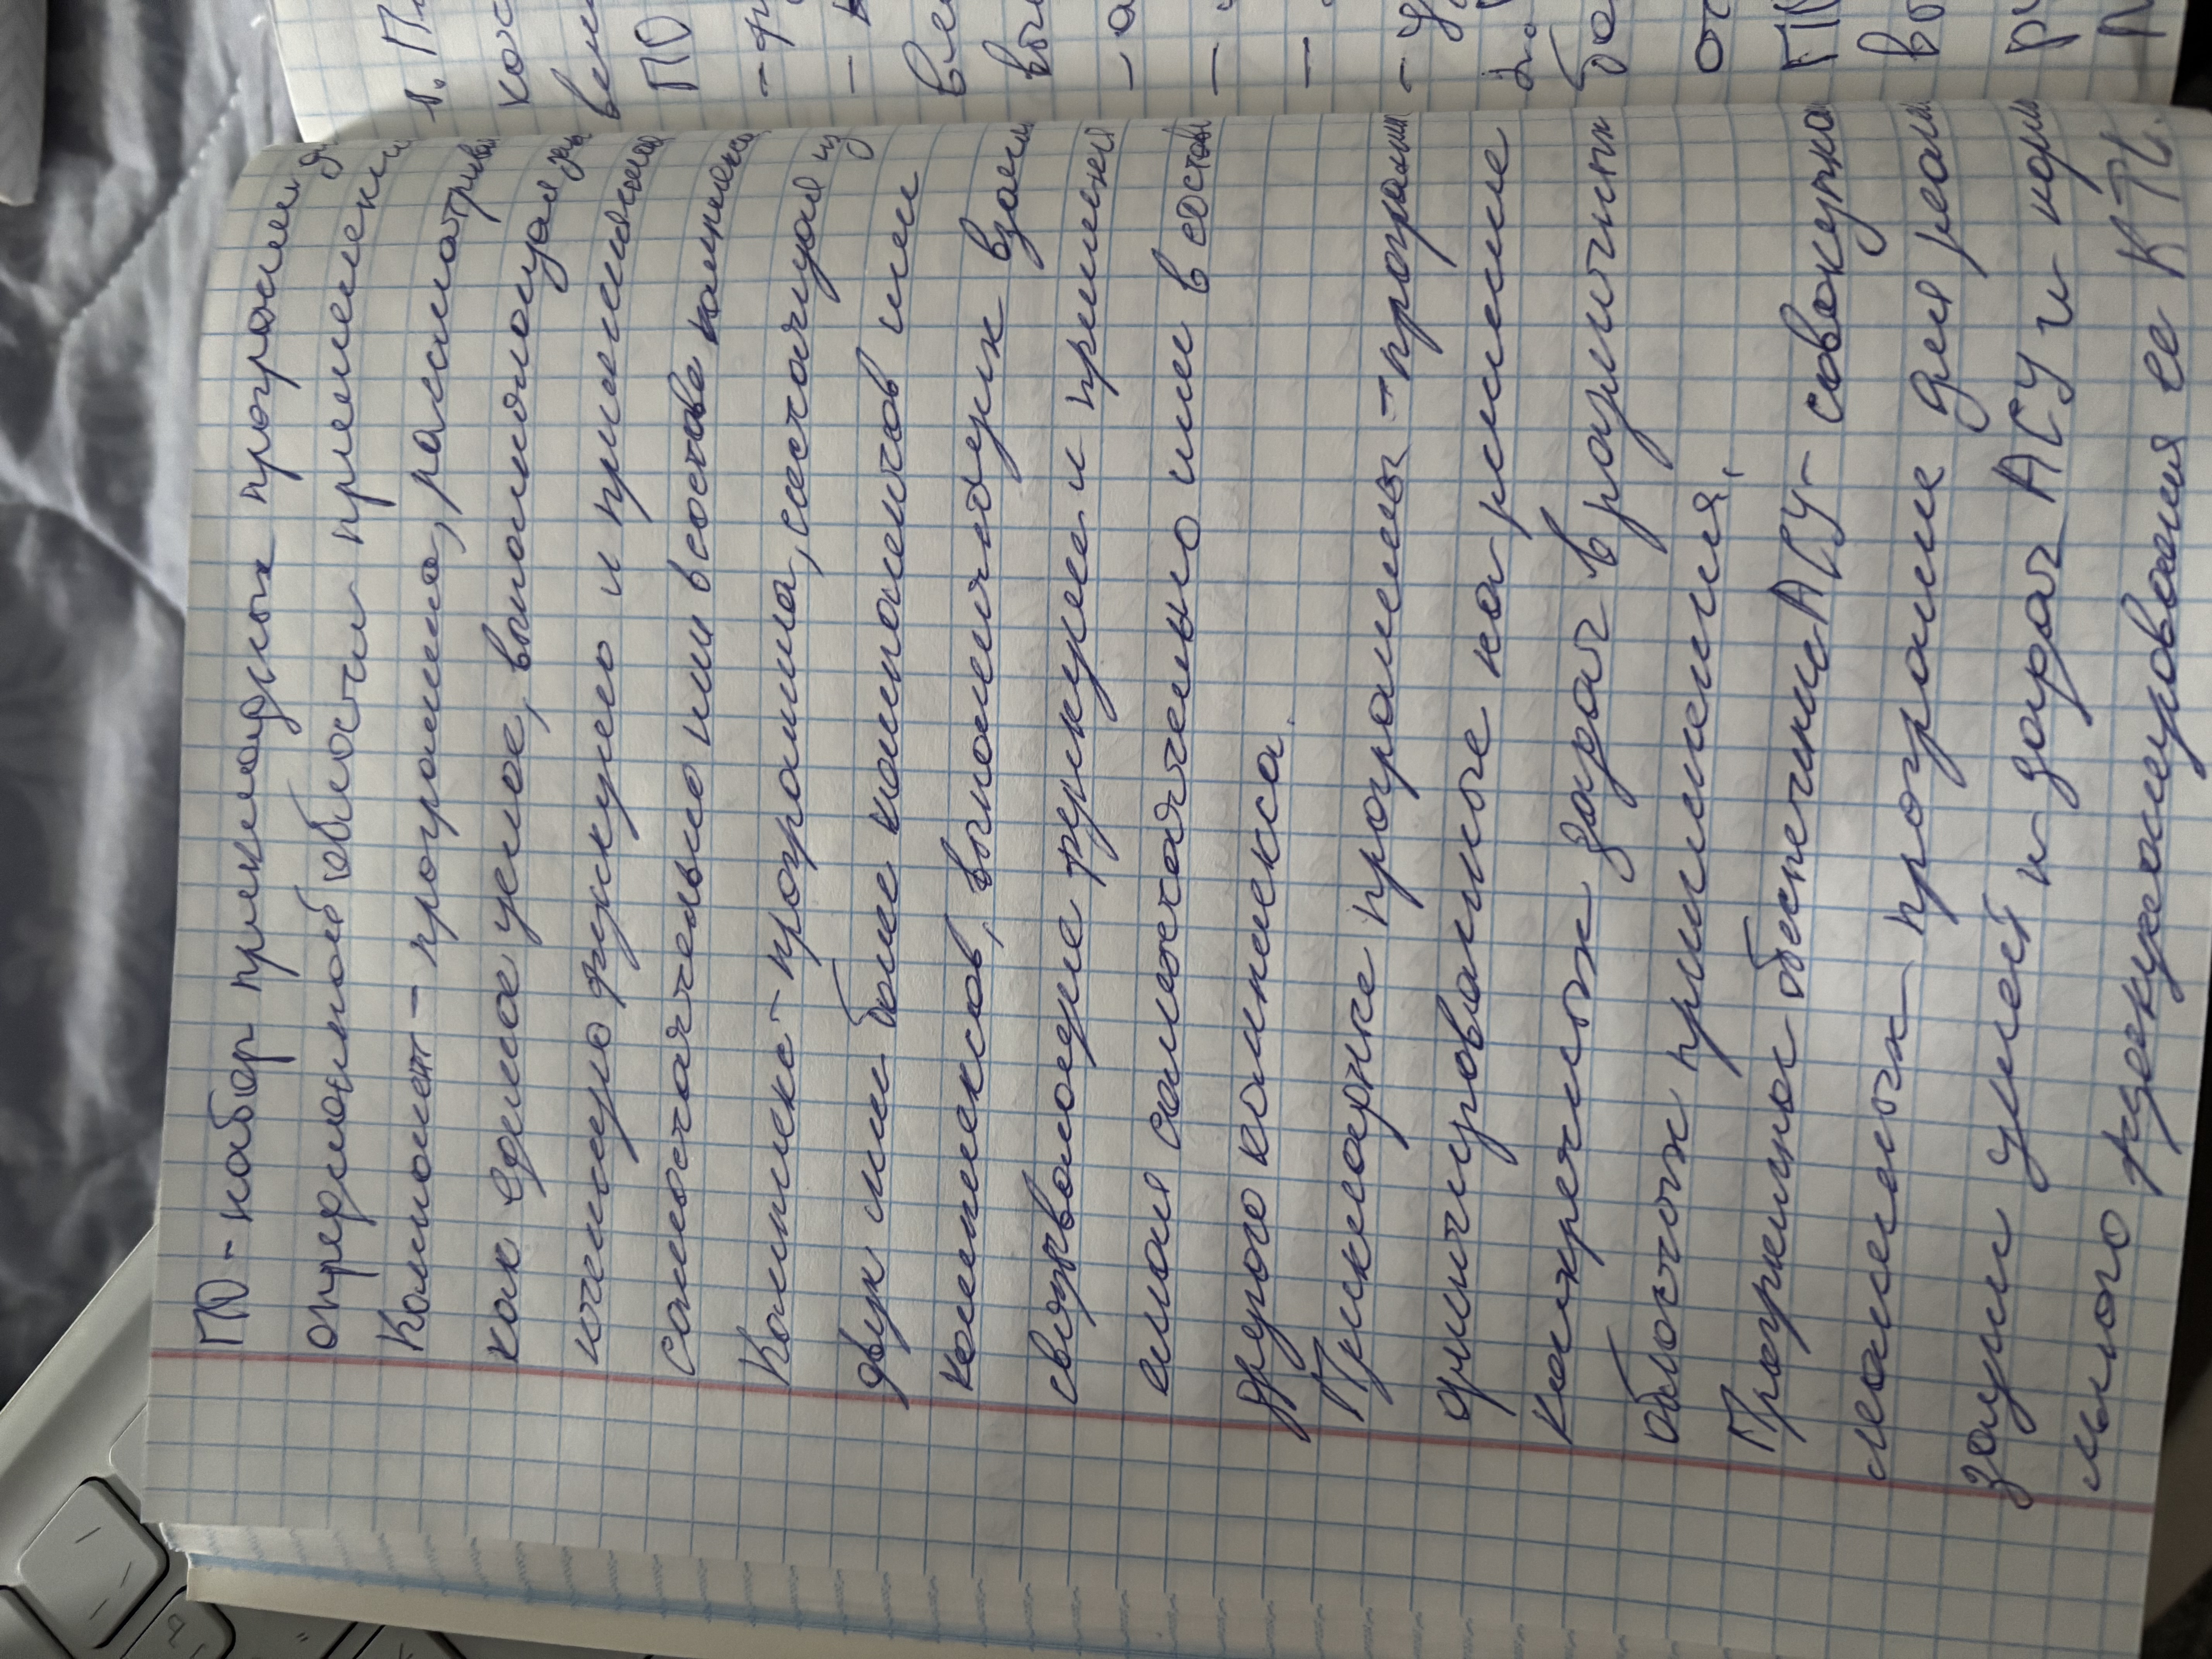 ПО - набор прикладных программ д
определённой области применени
Компонент - программа, рассматрива
как единое целое, выполняющая
конченную функцию и применяемая
самостоятельно или в составе комплекса
Комплекс - программа, состоящая из
двух или более компонентов или
комплексов, выполняющих взаи
связанные функции и применяе
емая самостоятельно или в составе
другого комплекса.
Прикладные программы - програм
ориентированные на решение
конкретных задач в различных
областях применения.
Программное обеспечение АСУ - совокупно
программ для реали
зации целей и задач АСУ и норм
ного функционирования ее КТС.
1. П
кос
вел
ПО
- ф
-
вы
- а
-
-
- у
бо
от
ПП
во